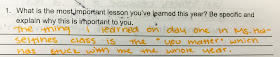 1. What is the most important lesson you've learned this year? Be specific and
explain why this is important to you.
The thing I learned on day one in Ms. Ha-
seltines class is the "you matter" which
has stuck with me the whole year.